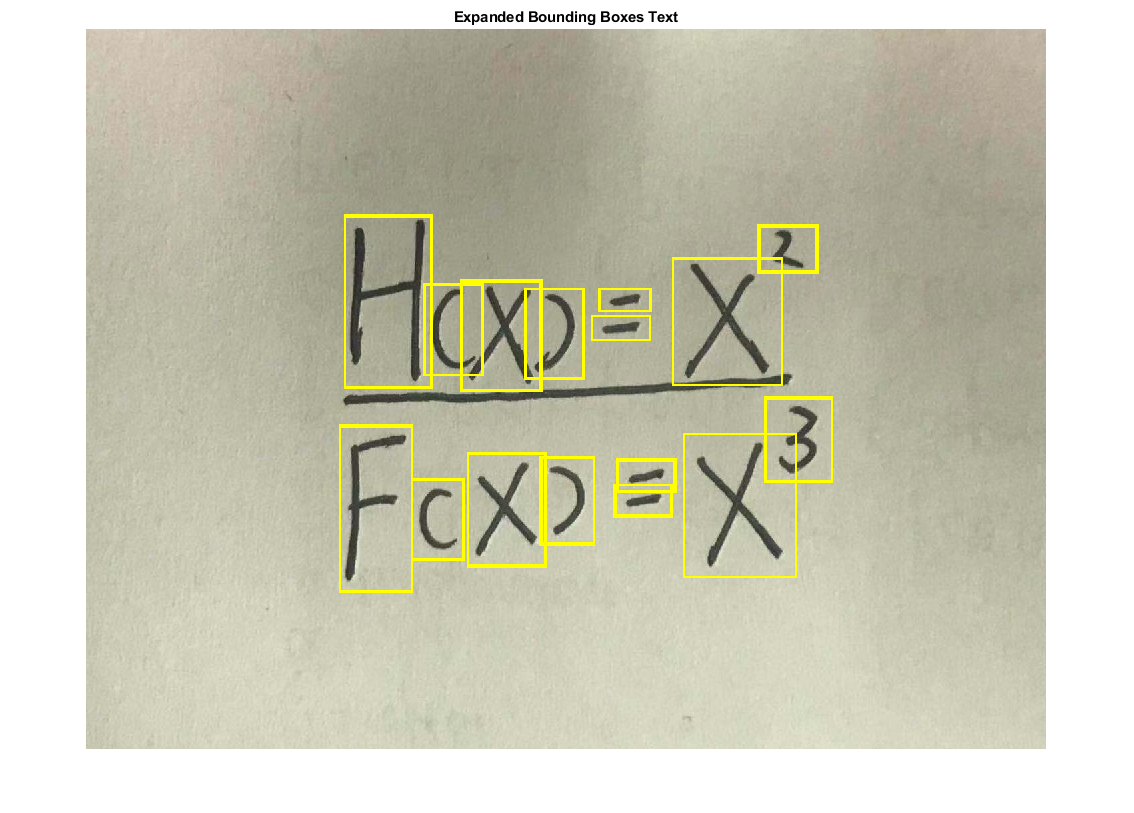 Expanded Bounding Boxes Text
H(x) = x²
F(x) = x³